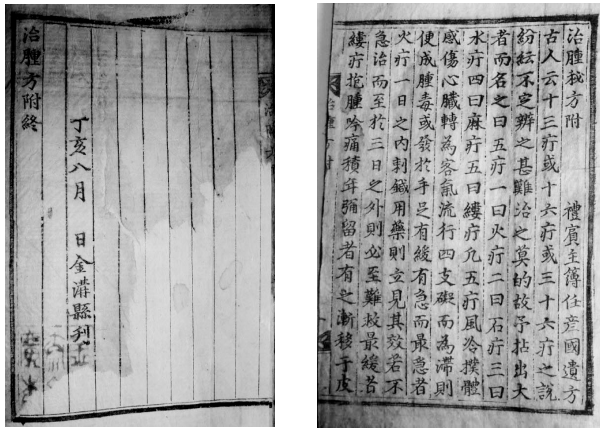 治腫秘方附 禮賓主簿任彥國遺方
古人云十三疔或十六疔或三十六疔之說
紛紜不定辨之甚難治之莫的故予拈出大
者而名之曰五疔一曰火疔二曰石疔三曰
水疔四曰麻疔五曰縷疔凢五疔風冷撲體
感傷心臟轉為客氣流行四支礙而為滯則
便成腫毒或發於手足有緩有急而最急者
火疔一日之內刺鍼用藥則立見其效若不
急治而至於三日之外則必至難救最緩者
縷疔抱腫吟痛積年彌留者有之漸移于皮
治腫方附
治腫方
丁亥八月 日金溝縣刊
治腫方附終